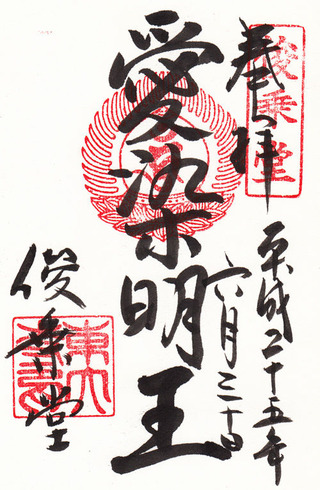 奉拝
俊乗堂
平成二十五年
六月三十日
愛染明王
俊乗堂
東大寺